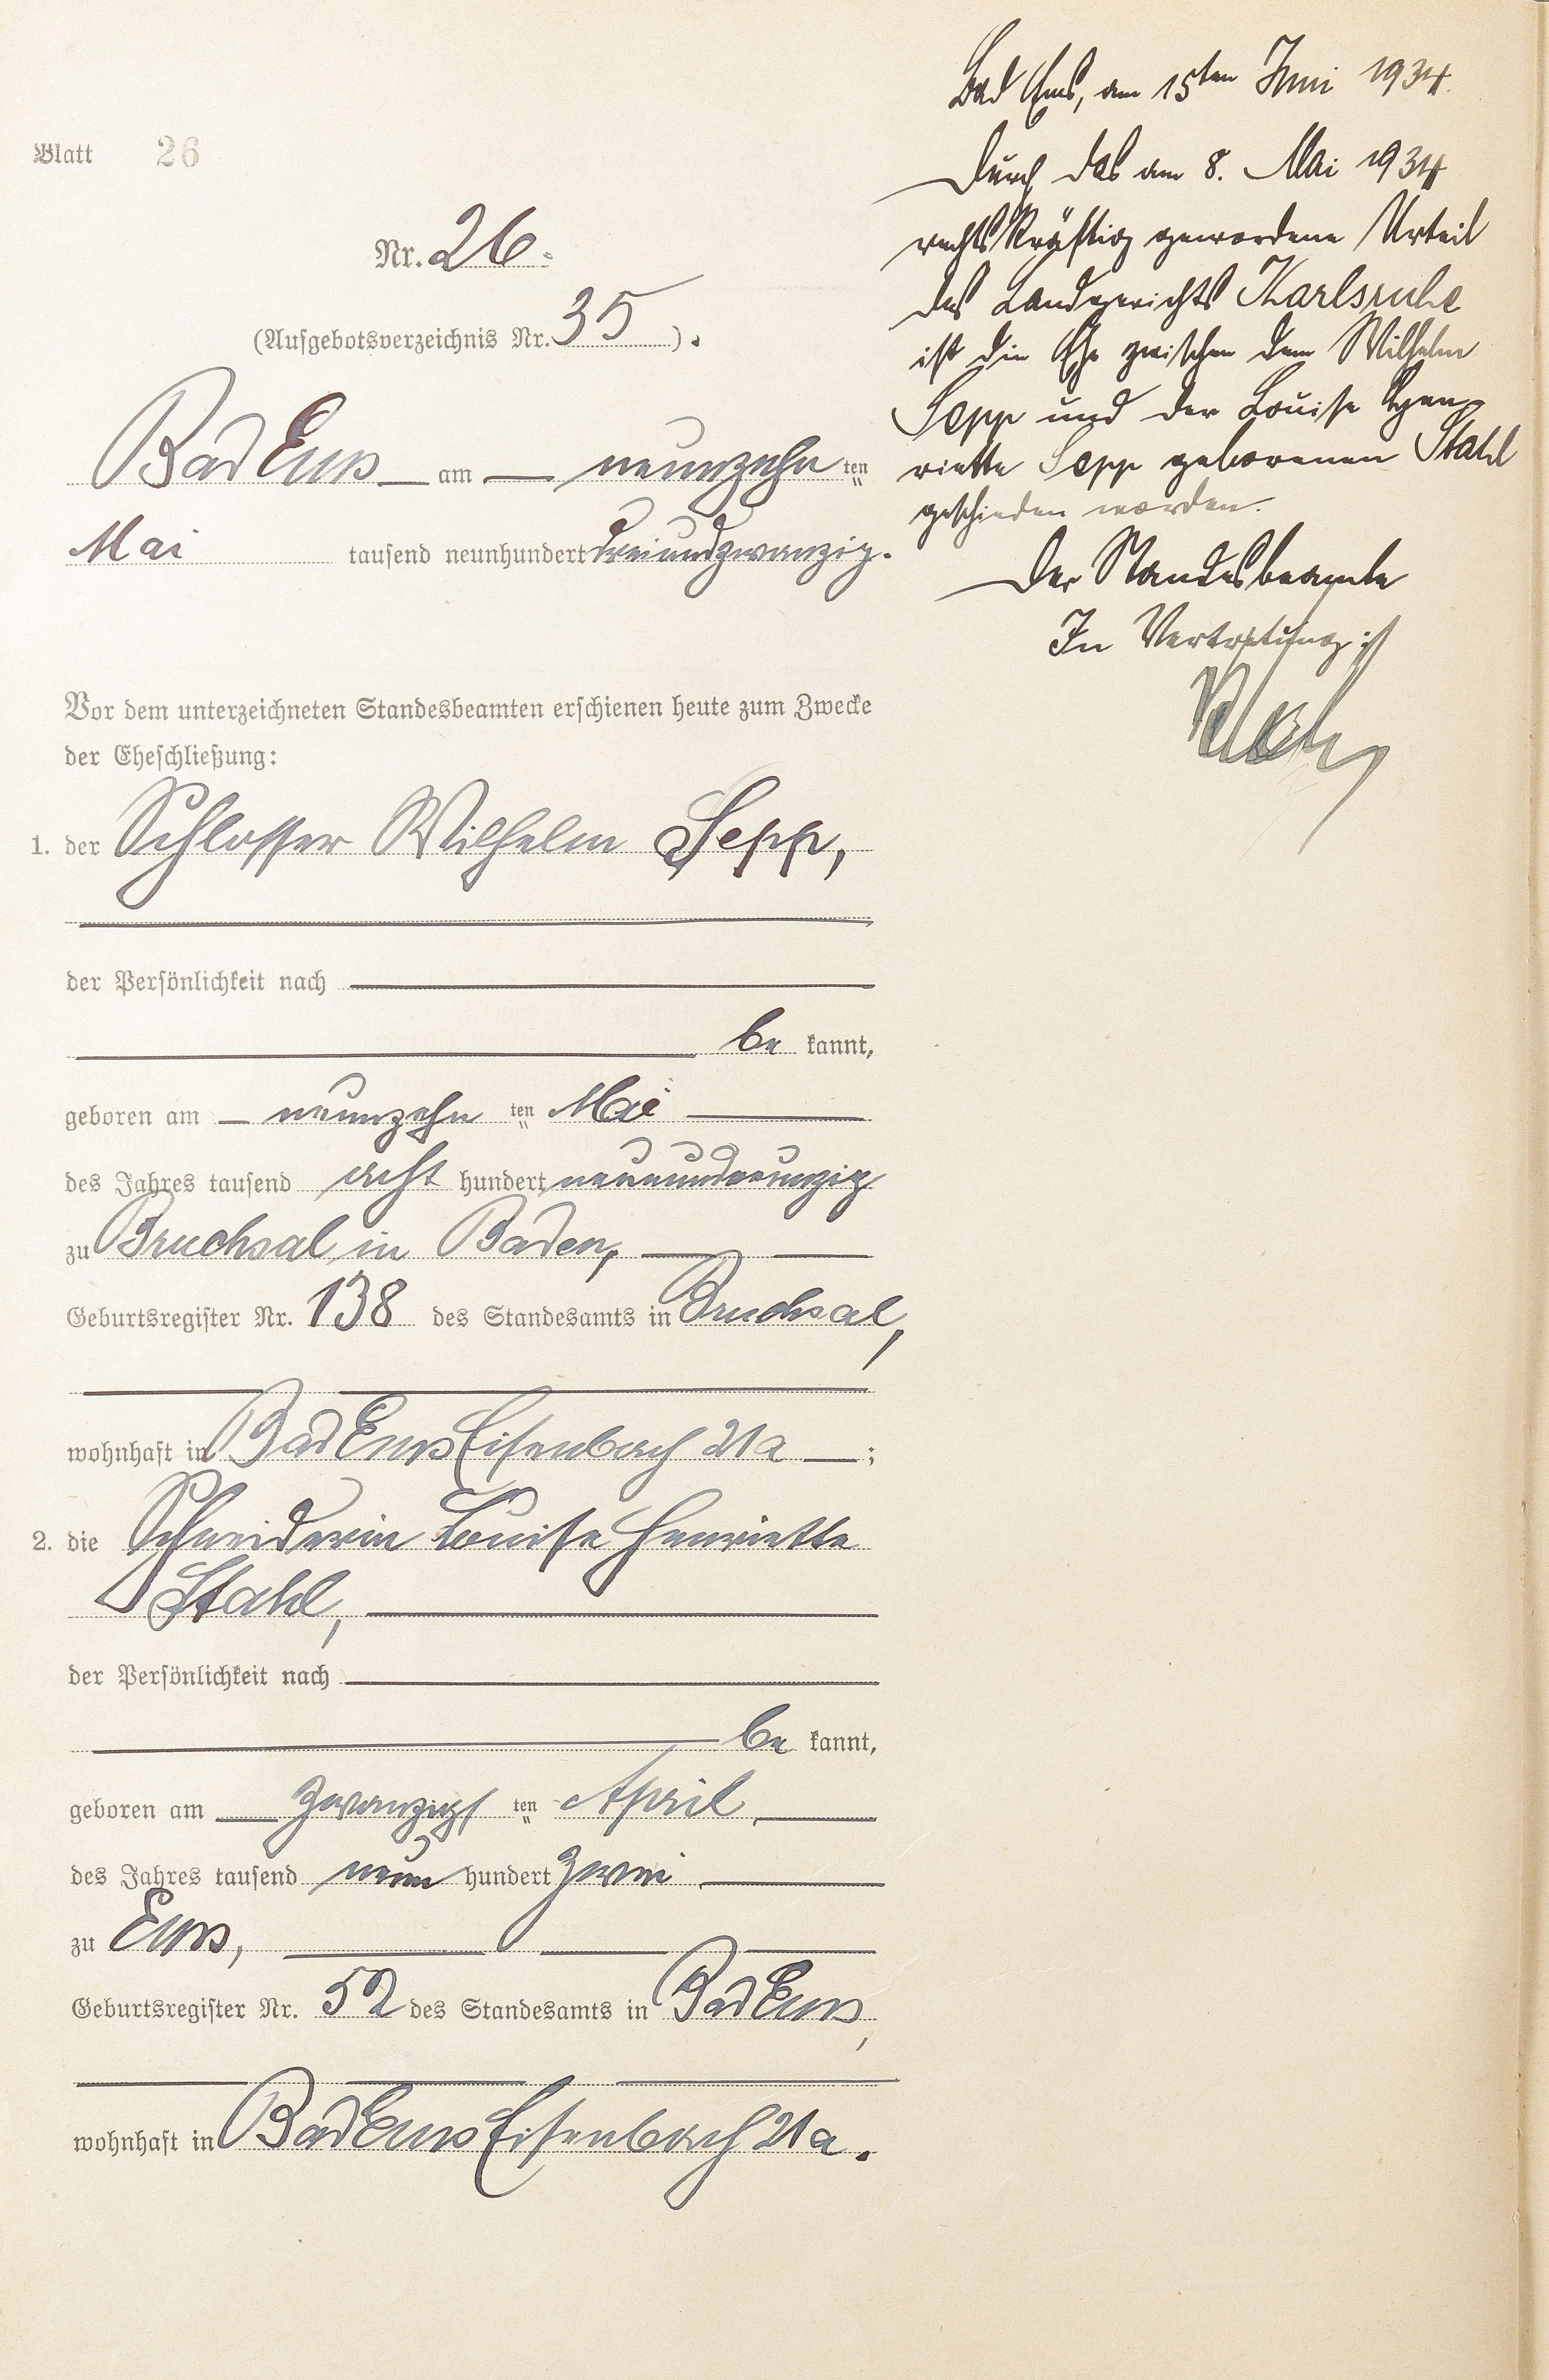 Blatt 26
Nr. 26.
(Aufgebotsverzeichnis Nr. 35).
Bad Ems am neunzehn ten
Mai tausend neunhundert dreiundzwanzig.
Vor dem unterzeichneten Standesbeamten erschienen heute zum Zwecke
der Eheschließung:
1. der Schlosser Wilhelm Sepp,
der Persönlichkeit nach
be kannt,
geboren am neunzehn ten Mai
des Jahres tausend acht hundert neunundneunzig
zu Bruchsal in Baden,
Geburtsregister Nr. 138 des Standesamts in Bruchsal,
wohnhaft in Bad Ems Eisenbach 21a ;
2. die Schneiderin Louise Henriette
Stahl,
der Persönlichkeit nach
be kannt,
geboren am zwanzigs ten April
des Jahres tausend neun hundert zwei
zu Ems,
Geburtsregister Nr. 52 des Standesamts in Bad Ems,
wohnhaft in Bad Ems Eisenbach 21a.
Bad Ems, am 15ten Juni 1934.
Durch das am 8. Mai 1934
rechtskräftig gewordene Urteil
des Landgerichts Karlsruhe
ist die Ehe zwischen dem Wilhelm
Sepp und der Louise Hen-
riette Sepp geborenen Stahl
geschieden worden.
Der Standesbeamte
In Vertretung: